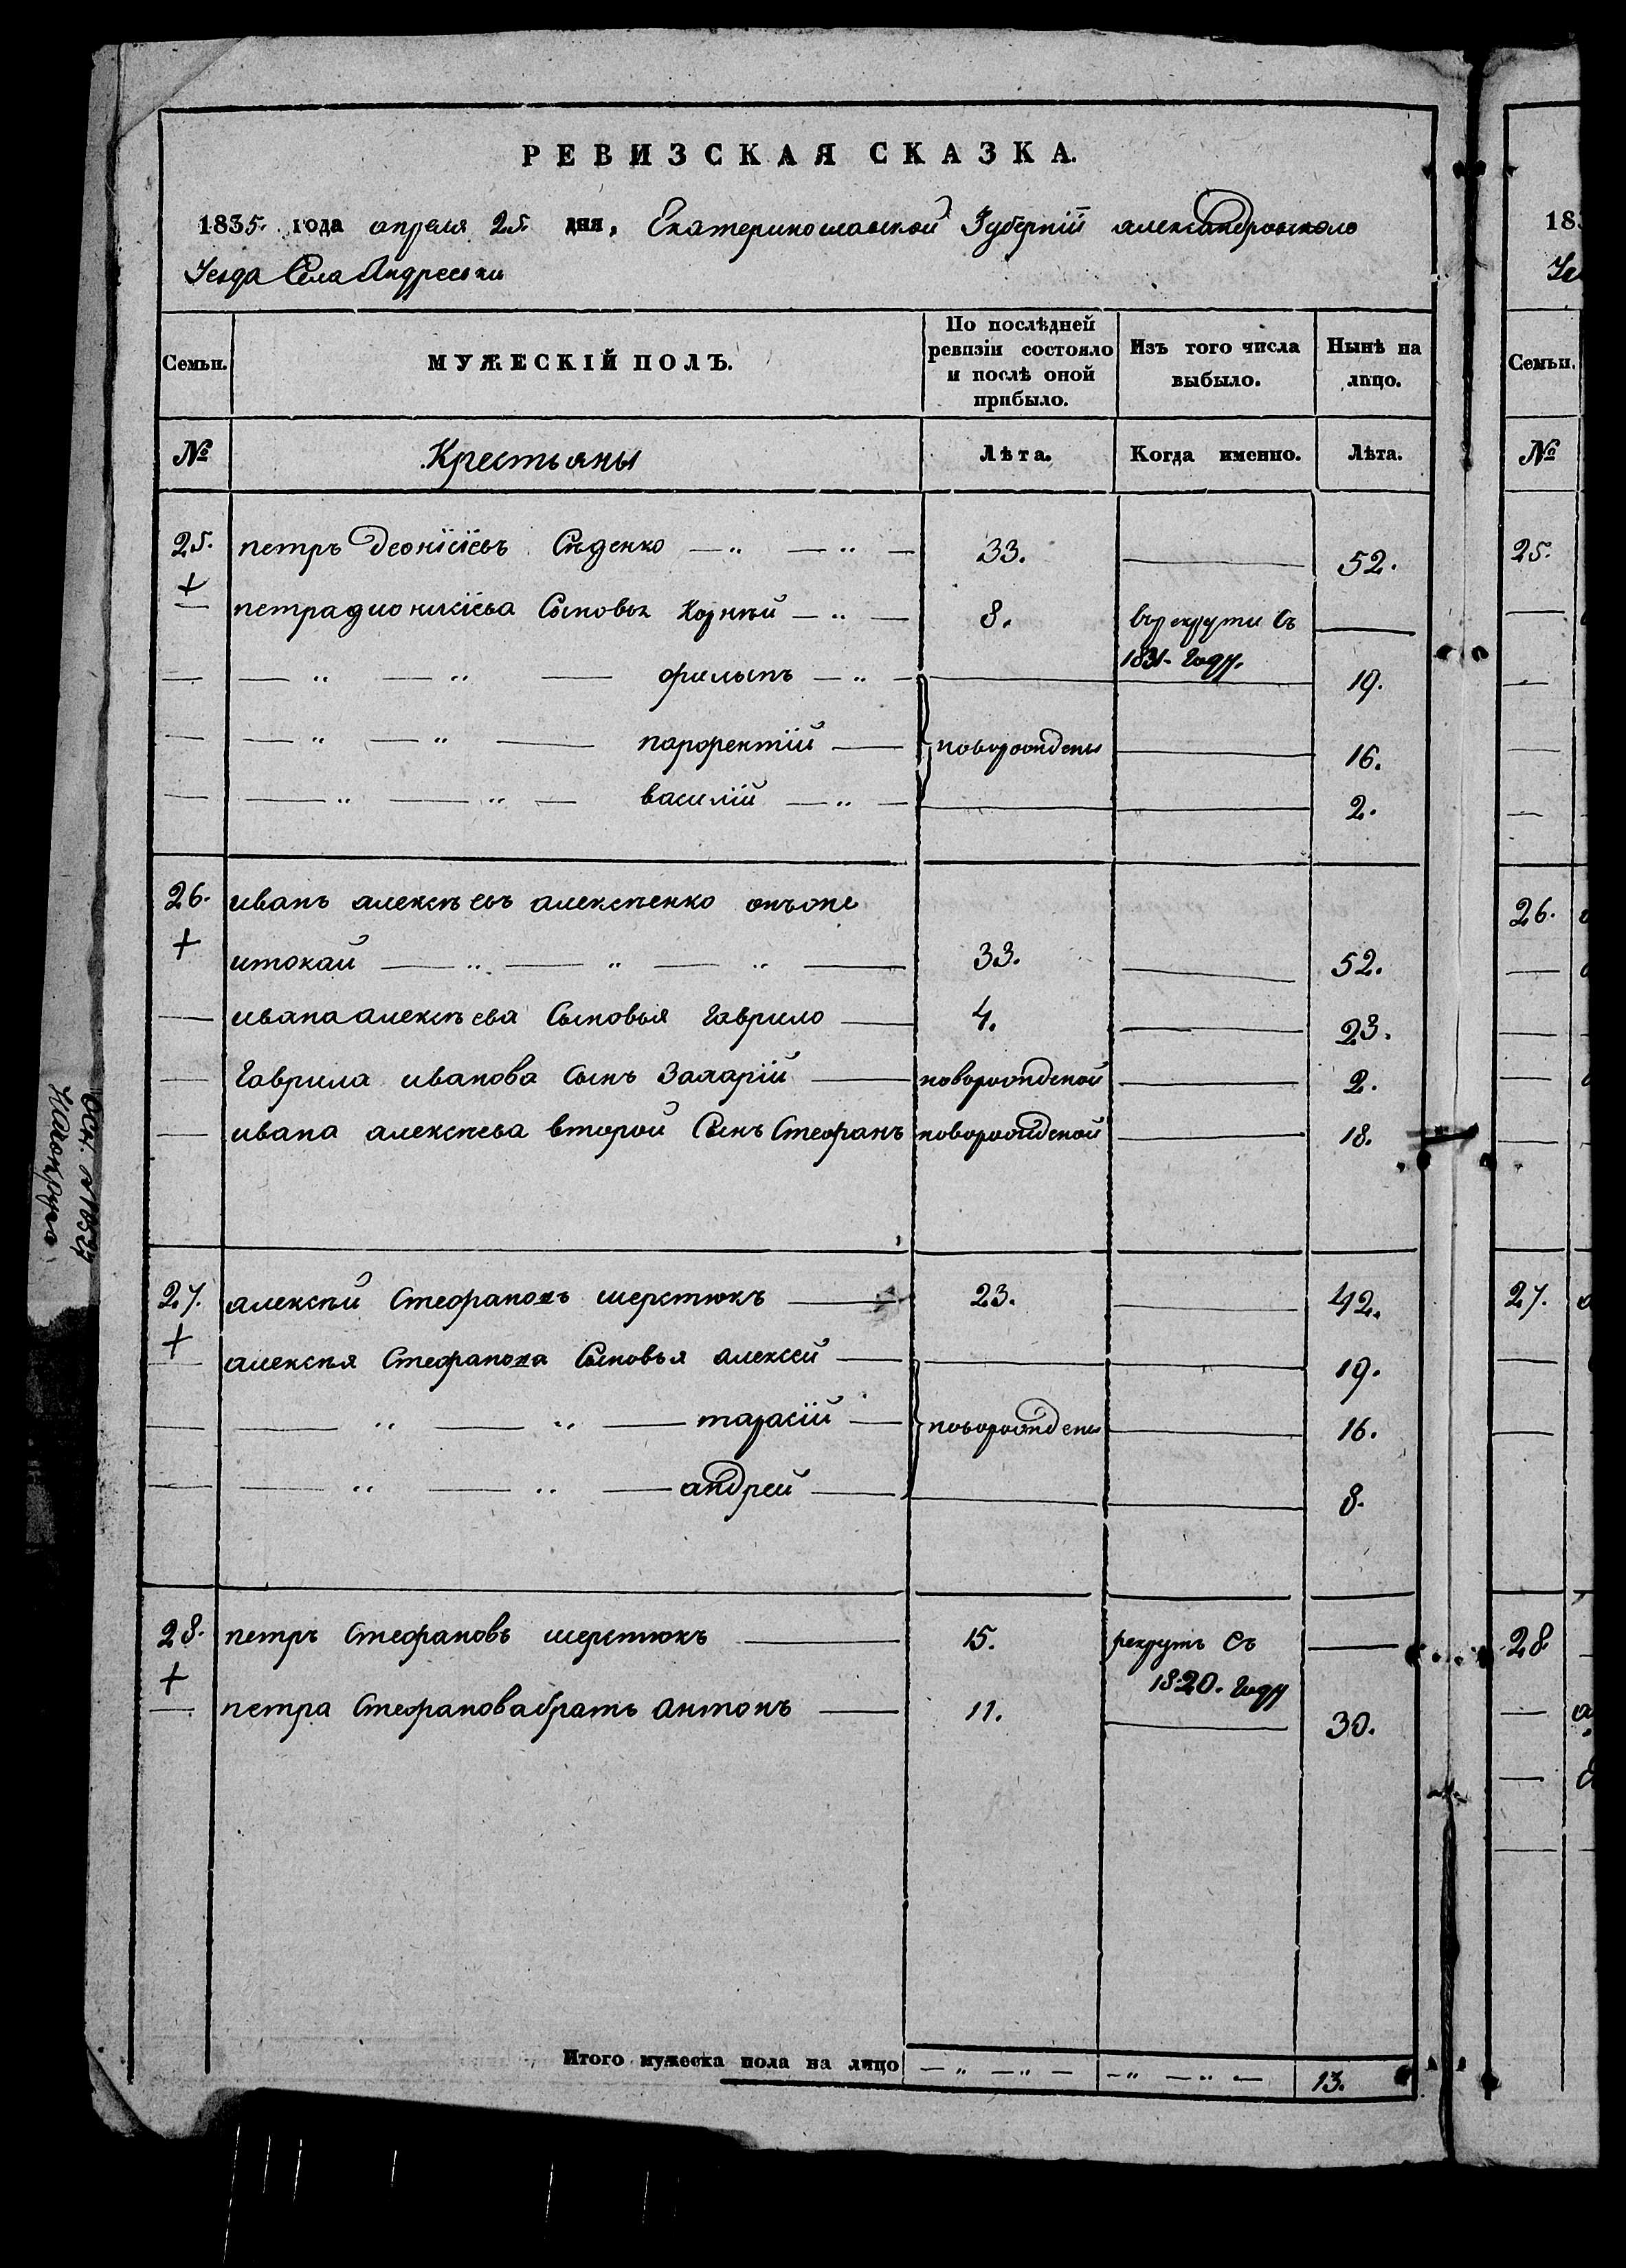 РЕВИЗСКАЯ СКАЗКА.
1835. года апреля 25. дня, Екатеринославской Губерніи александровскаго
Уезда Села Андреевки
Семьи. МУЖЕСКІЙ ПОЛЪ. По послѣдней ревизіи состояло и послѣ оной прибыло. Изъ того числа выбыло. Нынѣ на лицо.
№ Крестьяны Лѣта. Когда именно. Лѣта.
25. петръ деонісіевъ Сѣденко — „ — „ — 33. — 52.
+ — петра дионисіева Сыновья Корнѣй — „ — 8. въ рекрути въ —
1831- Году.
— — „ — „ — филыпъ — „ — — — 19.
— — „ — „ — парфентій — новорождены — 16.
— — „ — „ — василій — „ — — — 2.
26. иванъ алексѣевъ алексѣенко онъоне
+ итокай — „ — „ — „ — 33. — 52.
— ивана алексѣева Сыновья Гаврило — 4. — 23.
— Гаврила иванова Сынъ Захарій — новорожденой — 2.
— ивана алексѣева второй Сынъ Стефанъ новорожденой — 18.
27. алексѣй Стефановъ шерстюкъ — 23. — 42.
+ — алексѣя Стефанова Сыновья алексей — — — 19.
— — „ — „ — тарасій — новорождены — 16.
— — „ — „ — андрей — — — 8.
28. петръ Стефановъ шерстюкъ — 15. рекрутъ въ —
1820. Году
+ — петра Стефанова братъ антонъ — 11. — 30.
Итого мужеска пола на лицо — „ — „ — — „ — „ — 13.
183
Уе
Семьи.
№
25.
26.
27.
28